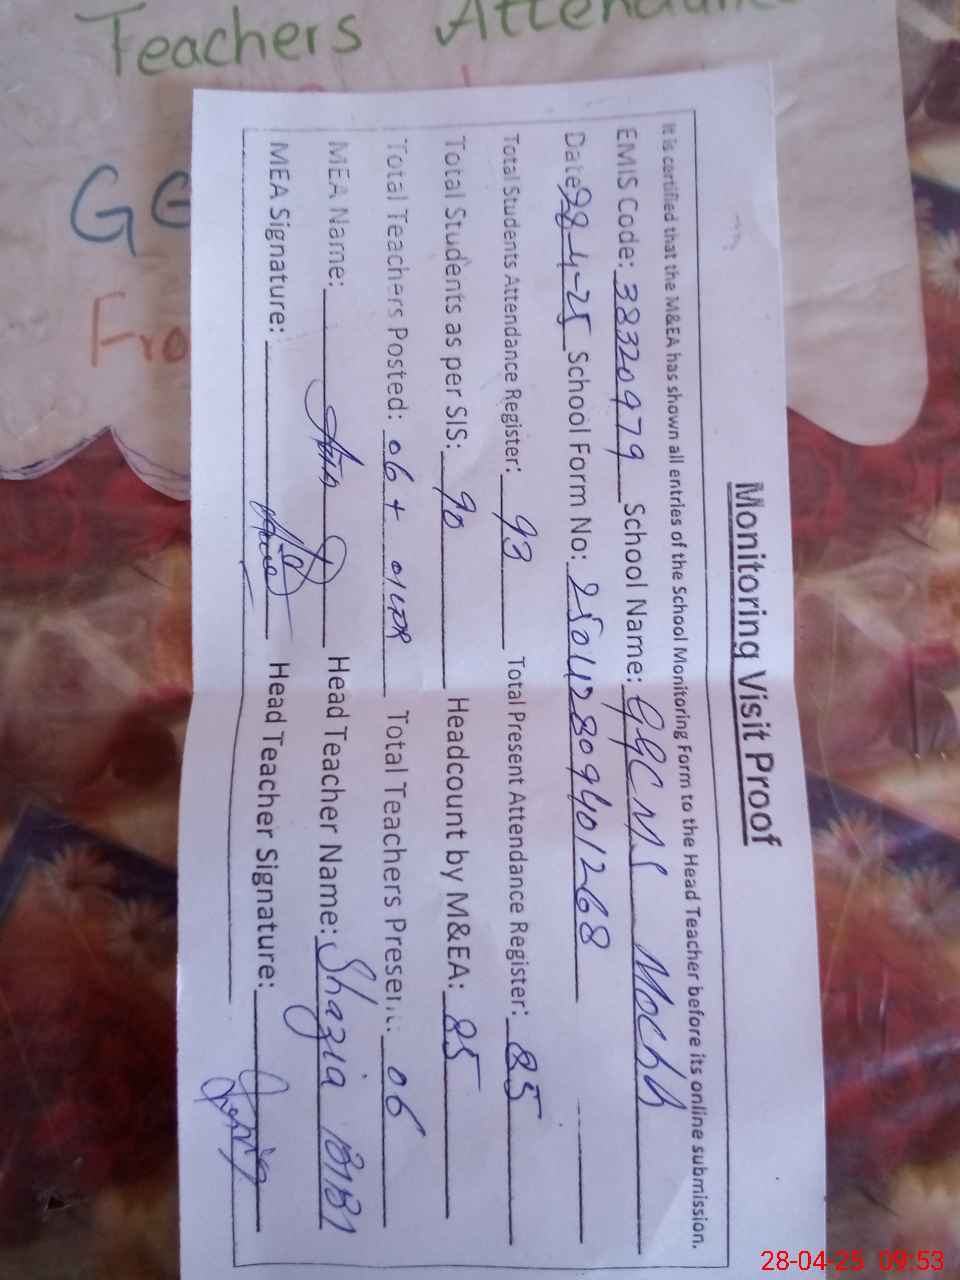 Teachers Attendance
GG
Fro
Monitoring Visit Proof
It is certified that the M&EA has shown all entries of the School Monitoring Form to the Head Teacher before its online submission.
EMIS Code: 38320979 School Name: GGCMS Mochh
Date: 28-4-25 School Form No: 25042809401268
Total Students Attendance Register: 93 Total Present Attendance Register: 85
Total Students as per SIS: 90 Headcount by M&EA: 85
Total Teachers Posted: 06 + 01 Total Teachers Present: 06
MEA Name: Head Teacher Name: Shazia BIBI
MEA Signature: Head Teacher Signature:
28-04-25 09:53